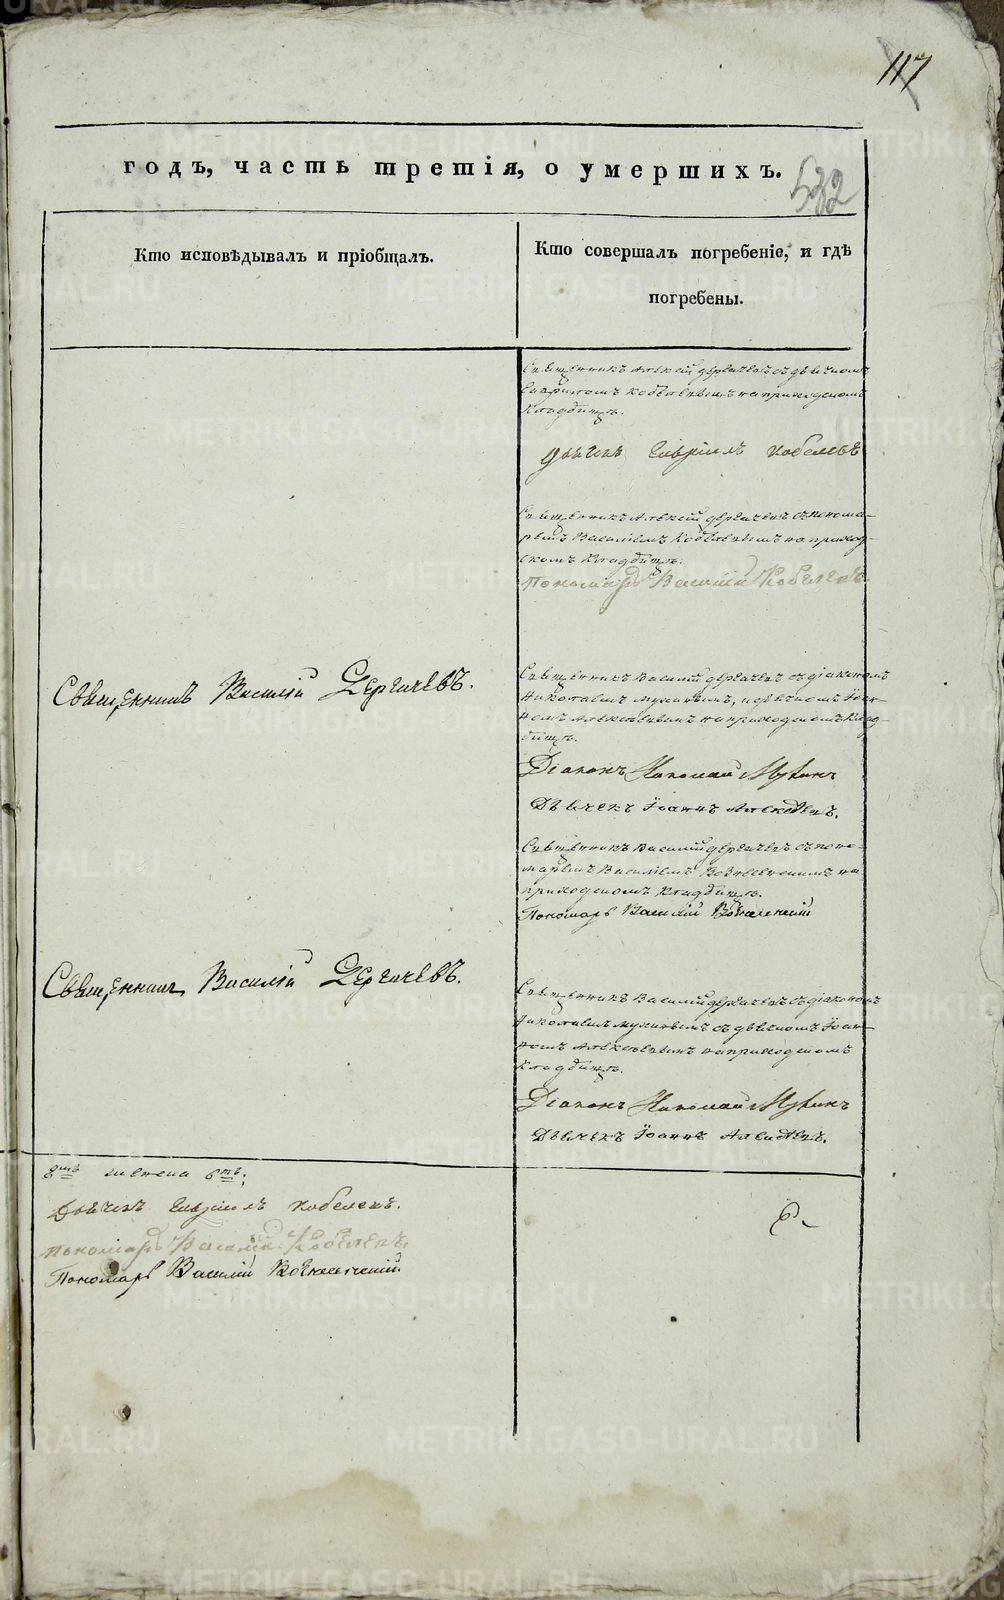 117
годъ, часть третія, о умершихъ.
532
Кто исповѣдывалъ и пріобщалъ.
Кто совершалъ погребеніе, и гдѣ
погребены.
Священникъ Алексій Дергачевъ съ дьячкомъ
Гавриломъ Кобелевымъ на приходскомъ
кладбищѣ.
Дьячекъ Гавріилъ Кобелевъ
Священникъ Алексій Дергачевъ съ понома-
ремъ Василіемъ Кобелевымъ на приход-
скомъ кладбищѣ.
Пономарь Василій Кобелевъ
Священникъ Василій Дергачевъ.
Священникъ Василій Дергачевъ съ діакономъ
Николаемъ Мухинымъ, и дьячкомъ Іоан-
номъ Алексѣевымъ на приходскомъ клад-
бищѣ.
Діаконъ Николай Мухинъ
Дьячекъ Іоаннъ Алексѣевъ.
Священникъ Василій Дергачевъ съ поно-
маремъ Василіемъ Вознесенскимъ на
приходскомъ кладбищѣ.
Пономарь Василій Вознесенскій
Священникъ Василій Дергачевъ.
Священникъ Василій Дергачевъ съ діакономъ
Николаемъ Мухинымъ съ дьячкомъ Іоан-
номъ Алексѣевымъ на приходскомъ
кладбищѣ.
Діаконъ Николай Мухинъ
Дьячекъ Іоаннъ Алексѣевъ.
Дьячекъ Гавріилъ Кобелевъ.
Пономарь Василій Кобелевъ
Пономарь Василій Вознесенскій
METRIKI.GASO-URAL.RU